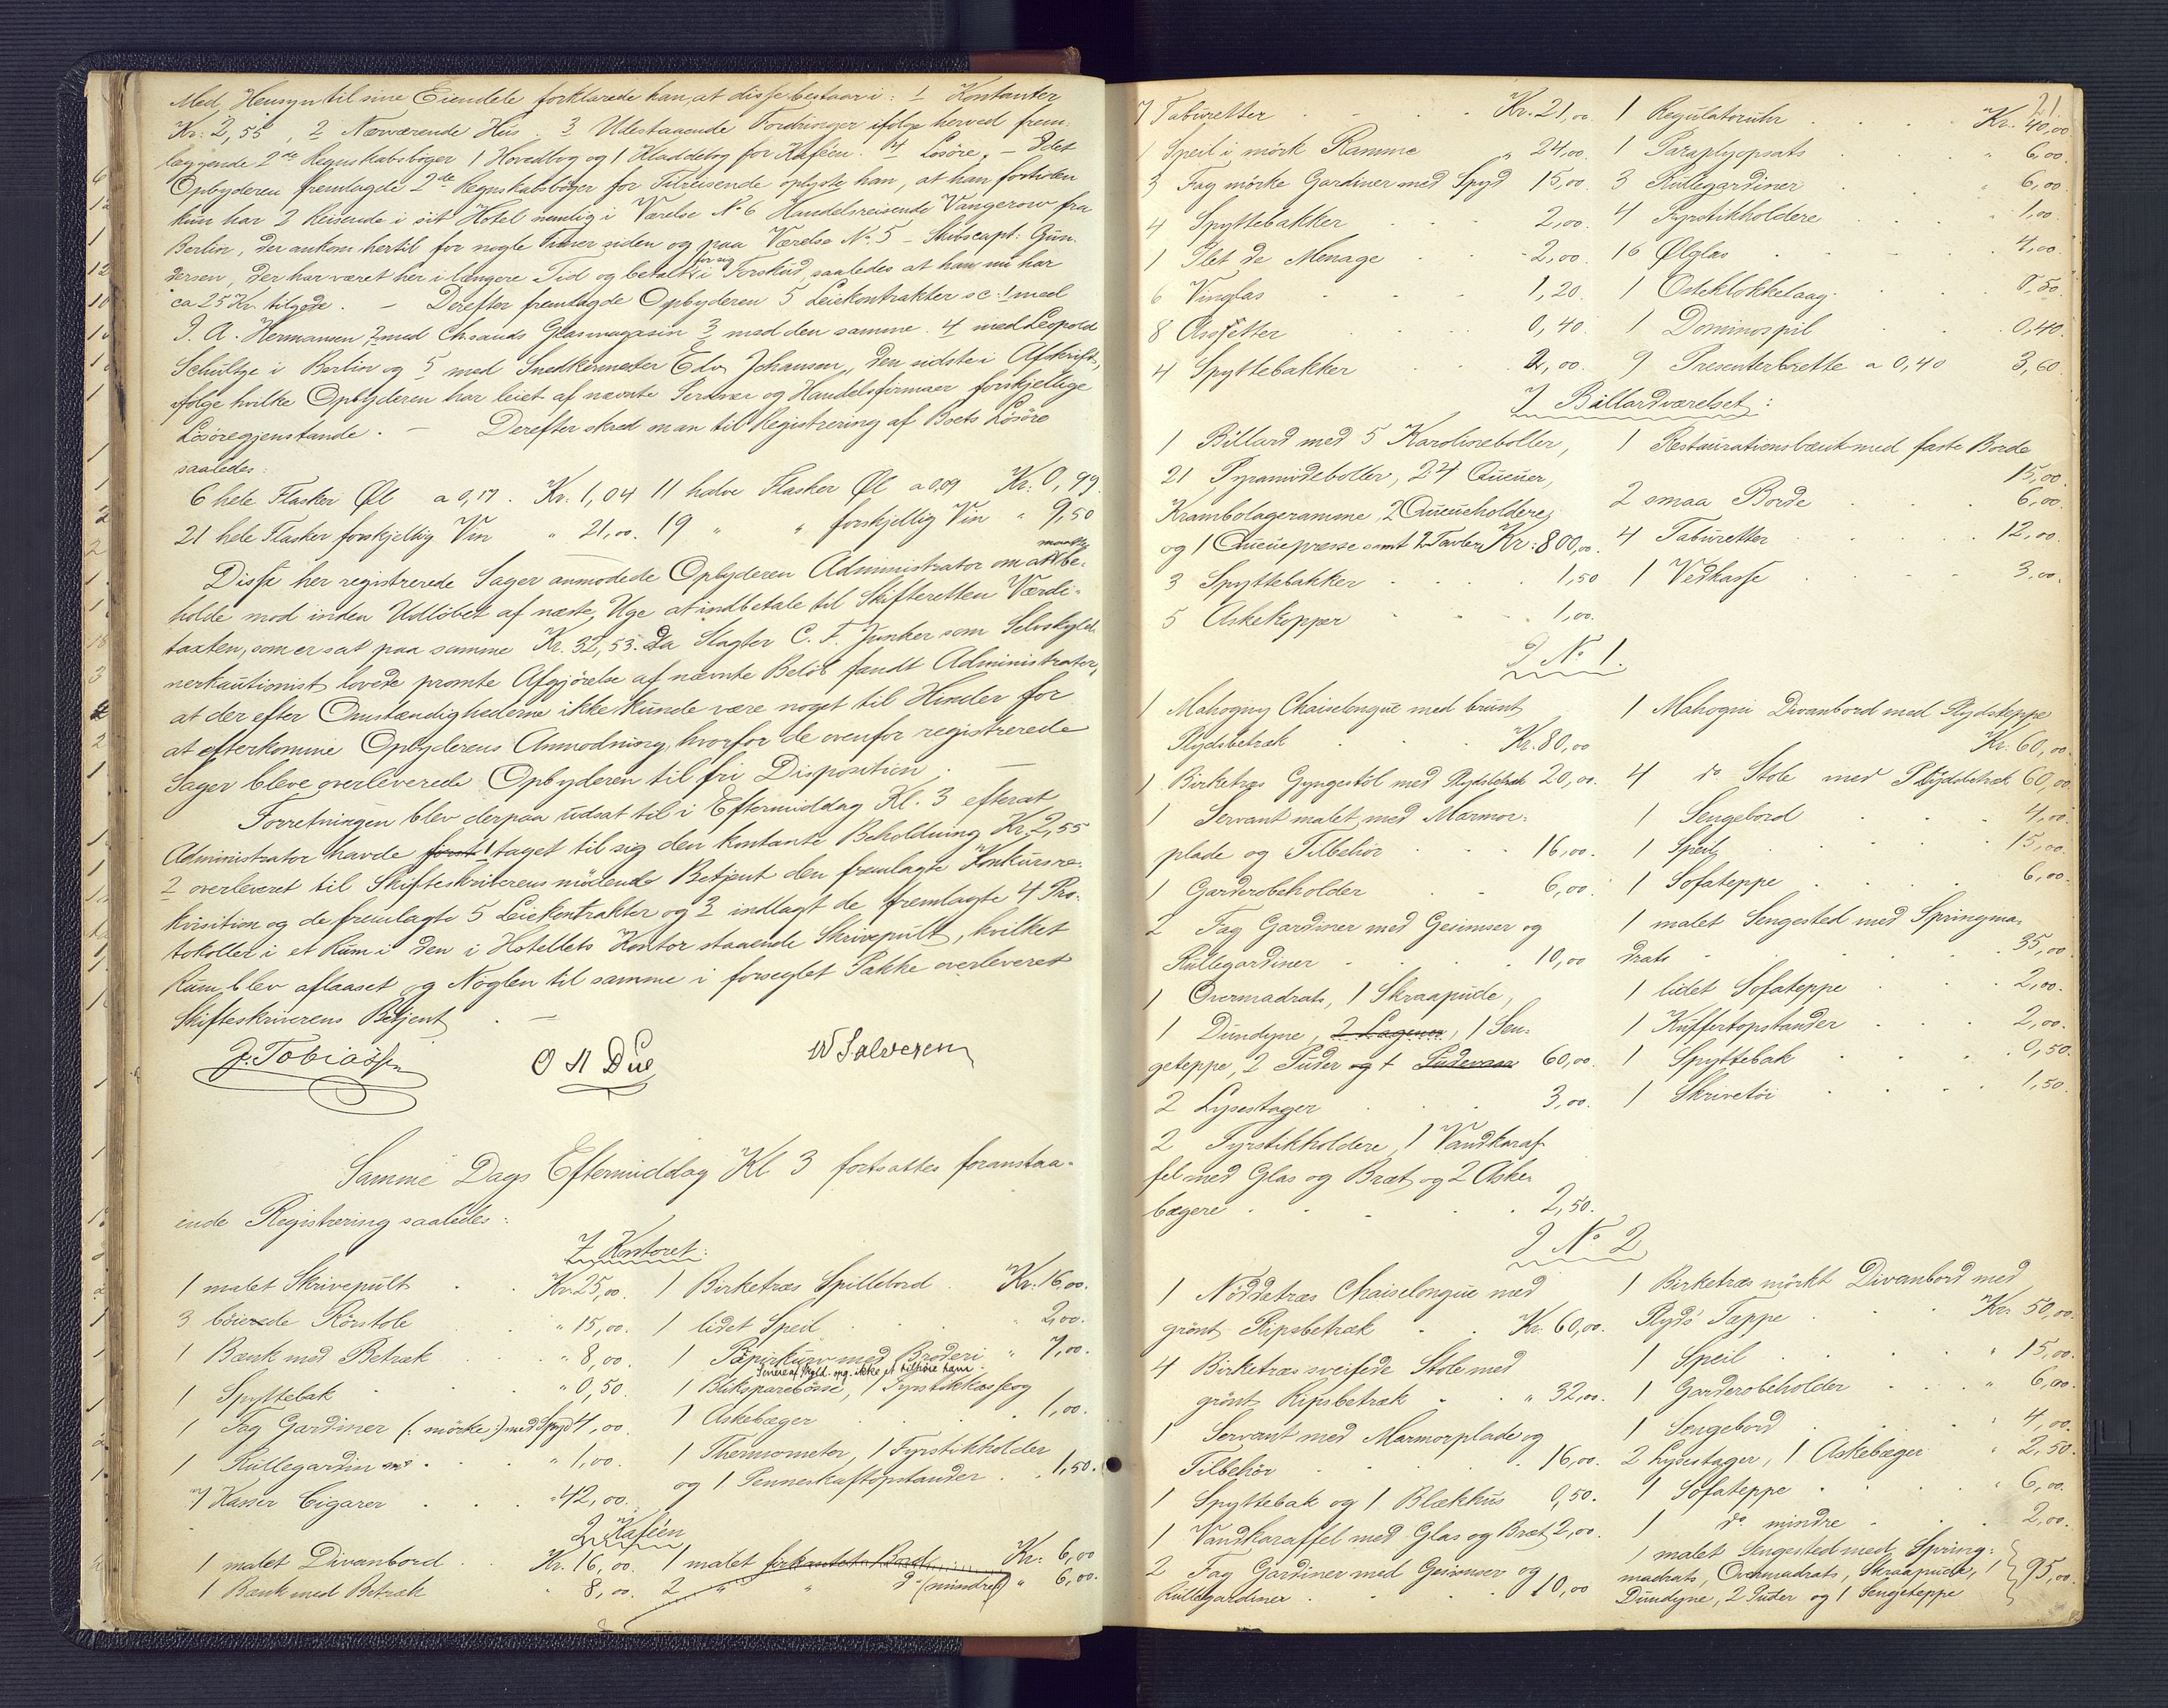 Med Hensyn til sine Eiendele forklarede han, at disse bestaar i: 1 Kontanter
Kr: 2,55, 2 Nærværende Hus. 3 Udestaaende Fordringer ifölge herved frem-
læggende 2de Regnskabsböger 1 Hovedbog og 1 Kladdebog for Kaféen. 4 Lösöre. – Idet
Opbyderen fremlagde 2de Regnskabsböger for Tilreisende oplyste han, at han fortiden
kun har 2 Reisende i sit Hotel nemlig i Værelse No 6 Handelsreisende Vangerow fra
Berlin, der ankom hertil for nogle Timer siden og paa Værelse No 5 – Skibscapt: Gun-
dersen, der har været her i længere Tid og betalt for sig i Forskud, saaledes at han nu har
ca 25 Kr. tilgode. – Derefter fremlagde Opbyderen 5 Leiekontrakter sc: 1 med
J. A. Hermansen, 2 med Ch.sands Glasmagasin 3 med den samme. 4 med Leopold
Schultze i Berlin og 5 med Snedkermester Edv. Johansen, den sidste i Afskrift,
ifölge hvilke Opbyderen har leiet af nævnte Personer og Handelsfirmaer forskjellige
Lösöregjenstande. – Derefter skred man til Registrering af Boets Lösöre
saaledes:
6 hele Flasker Øl a 0,17. Kr. 1,04 11 halve Flasker Øl a 0,09 Kr: 0,99.
21 hele Flasker forskjellig Vin " 21,00. 19 " " forskjellig Vin " 9,50
Disse her registrerede Sager anmodede Opbyderen Administrator om at maatte be-
holde mod inden Udlöbet af næste Uge at indbetale til Skifteretten Værdi-
taxten, som er sat paa samme Kr. 32,53. Da Slagter C. F. Junker som Selvskyld-
nerkautionist lovede promte Afgjörelse af nævnte Belöb fandt Administrator,
at der efter Omstændighederne ikke kunde være noget til Hinder for
at efterkomme Opbyderens Anmodning, hvorfor de ovenfor registrerede
Sager bleve overleverede Opbyderen til fri Disposition. –
Forretningen blev derpaa udsat til i Eftermiddag Kl. 3 efterat
Administrator havde först 1 taget til sig den kontante Beholdning Kr. 2,55
2 overleveret til Skifteskriverens mödende Betjent den fremlagte Konkursre-
kvisition og de fremlagte 5 Leiekontrakter og 3 indlagt de fremlagte 4 Pro-
tokoller i et Rum i den i Hotellets Kontor staaende Skrivepult, hvilket
Rum blev aflaaset og Nöglen til samme i forseglet Pakke overleveret
Skifteskriverens Betjent. –
J. Tobiassen O A Due W Salvesen
Samme Dags Eftermiddag Kl 3 fortsattes foranstaa-
ende Registrering saaledes:
I Kontoret:
1 malet Skrivepult Kr. 25,00. 1 Birketræs Spillebord Kr. 16,00.
3 böiede Rörstole " 15,00. 1 lidet Speil " 2,00.
1 Bænk med Betræk " 8,00. 1 Papirkurv med Broderi " 7,00.
1 Spyttebak " 0,50. 1 Bliksparebösse, 1 Fyrstikkasse og
1 Fag Gardiner (: mörke :) med Spyd 4,00. 1 Askebæger 1,00.
1 Rullegardin 1,00. 1 Thermometer, 1 Fyrstikholder
7 Kasser Cigarer " 42,00. og 1 Penneskaftopstander 1,50.
I Kaféen
1 malet Divanbord Kr. 16,00. 1 malet firkantet Bord Kr: 6,00
1 Bænk med Betræk " 8,00. 2 " " do (mindre) " 6,00.
21
7 Taburetter Kr. 21,00 1 Regulatoruhr Kr. 40,00
1 Speil i mörk Ramme " 24,00. 1 Paraplyopsats " 6,00.
3 Fag mörke Gardiner med Spyd 15,00. 3 Rullegardiner " 6,00.
4 Spyttebakker 2,00. 4 Fyrstikholdere 1,00.
1 Plet de Menage 2,00. 16 Ølglas 4,00.
6 Vinglas 1,20. 1 Osteklokkelaag 0,50.
8 Assietter 0,40. 1 Dominospil 0,40.
4 Spyttebakker 2,00. 9 Presenterbrette a 0,40 3,60.
I Billardværelset:
1 Billard med 5 Karolineboller, 1 Restaurationsbænk med faste Borde
21 Pyramideboller, 24 Queuer, 15,00.
Krambolageramme, 2 Queueholdere, 2 smaa Borde 6,00.
og 1 Queuepresse samt 2 Tavler Kr: 800,00. 4 Taburetter 12,00.
3 Spyttebakker 1,50 1 Vedkasse 3,00.
5 Askekopper 1,00.
I No 1.
1 Mahogny Chaiselongue med brunt 1 Mahogni Divanbord med Plydsteppe
Plydsbetræk Kr. 80,00 Kr: 60,00.
1 Birketræs Gyngestol med Plydsbetræk 20,00. 4 do Stole med Plydsbetræk 60,00
1 Servant malet med Marmor- 1 Sengebord 4,00.
plade og Tilbehör 16,00. 1 Speil 15,00.
1 Garderobeholder 6,00. 1 Sofateppe 6,00.
2 Fag Gardiner med Gesimser og 1 malet Sengested med Springma-
Rullegardiner 10,00 drats 35,00
1 Overmadrats, 1 Skraapude, 1 lidet Sofateppe 2,00.
1 Dundyne, 2 Lagener, 1 Sen- 1 Kuffertopstander 2,00.
geteppe, 2 Puder og 1 Pudevaar 60,00. 1 Spyttebak 0,50.
2 Lysestager 3,00. 1 Skrivetöi 1,50.
2 Fyrstikholdere, 1 Vandkaraf-
fel med Glas og Bræt og 2 Aske-
bægere 2,50.
I No 2
1 Nöddetræs Chaiselongue med 1 Birketræs mörkt Divanbord med
grönt Ripsbetræk Kr: 60,00. Plyds Tæppe Kr. 50,00.
4 Birketræs sveifede Stole med 1 Speil " 15,00.
grönt Ripsbetræk " 32,00. 1 Garderobeholder " 6,00.
1 Servant med Marmorplade og 1 Sengebord " 4,00.
Tilbehör 16,00. 2 Lysestager, 1 Askebæger " 2,50.
1 Spyttebak og 1 Blækhus 0,50. 1 Sofateppe " 6,00.
1 Vandkaraffel med Glas og Bræt 2,00. 1 do mindre 2,00.
2 Fag Gardiner med Gesimser og 1 malet Sengested med Spring-
Rullegardiner 10,00 madrats, Overmadrats, Skraapude, 1
Dundyne, 2 Puder og 1 Sengeteppe 95,00.